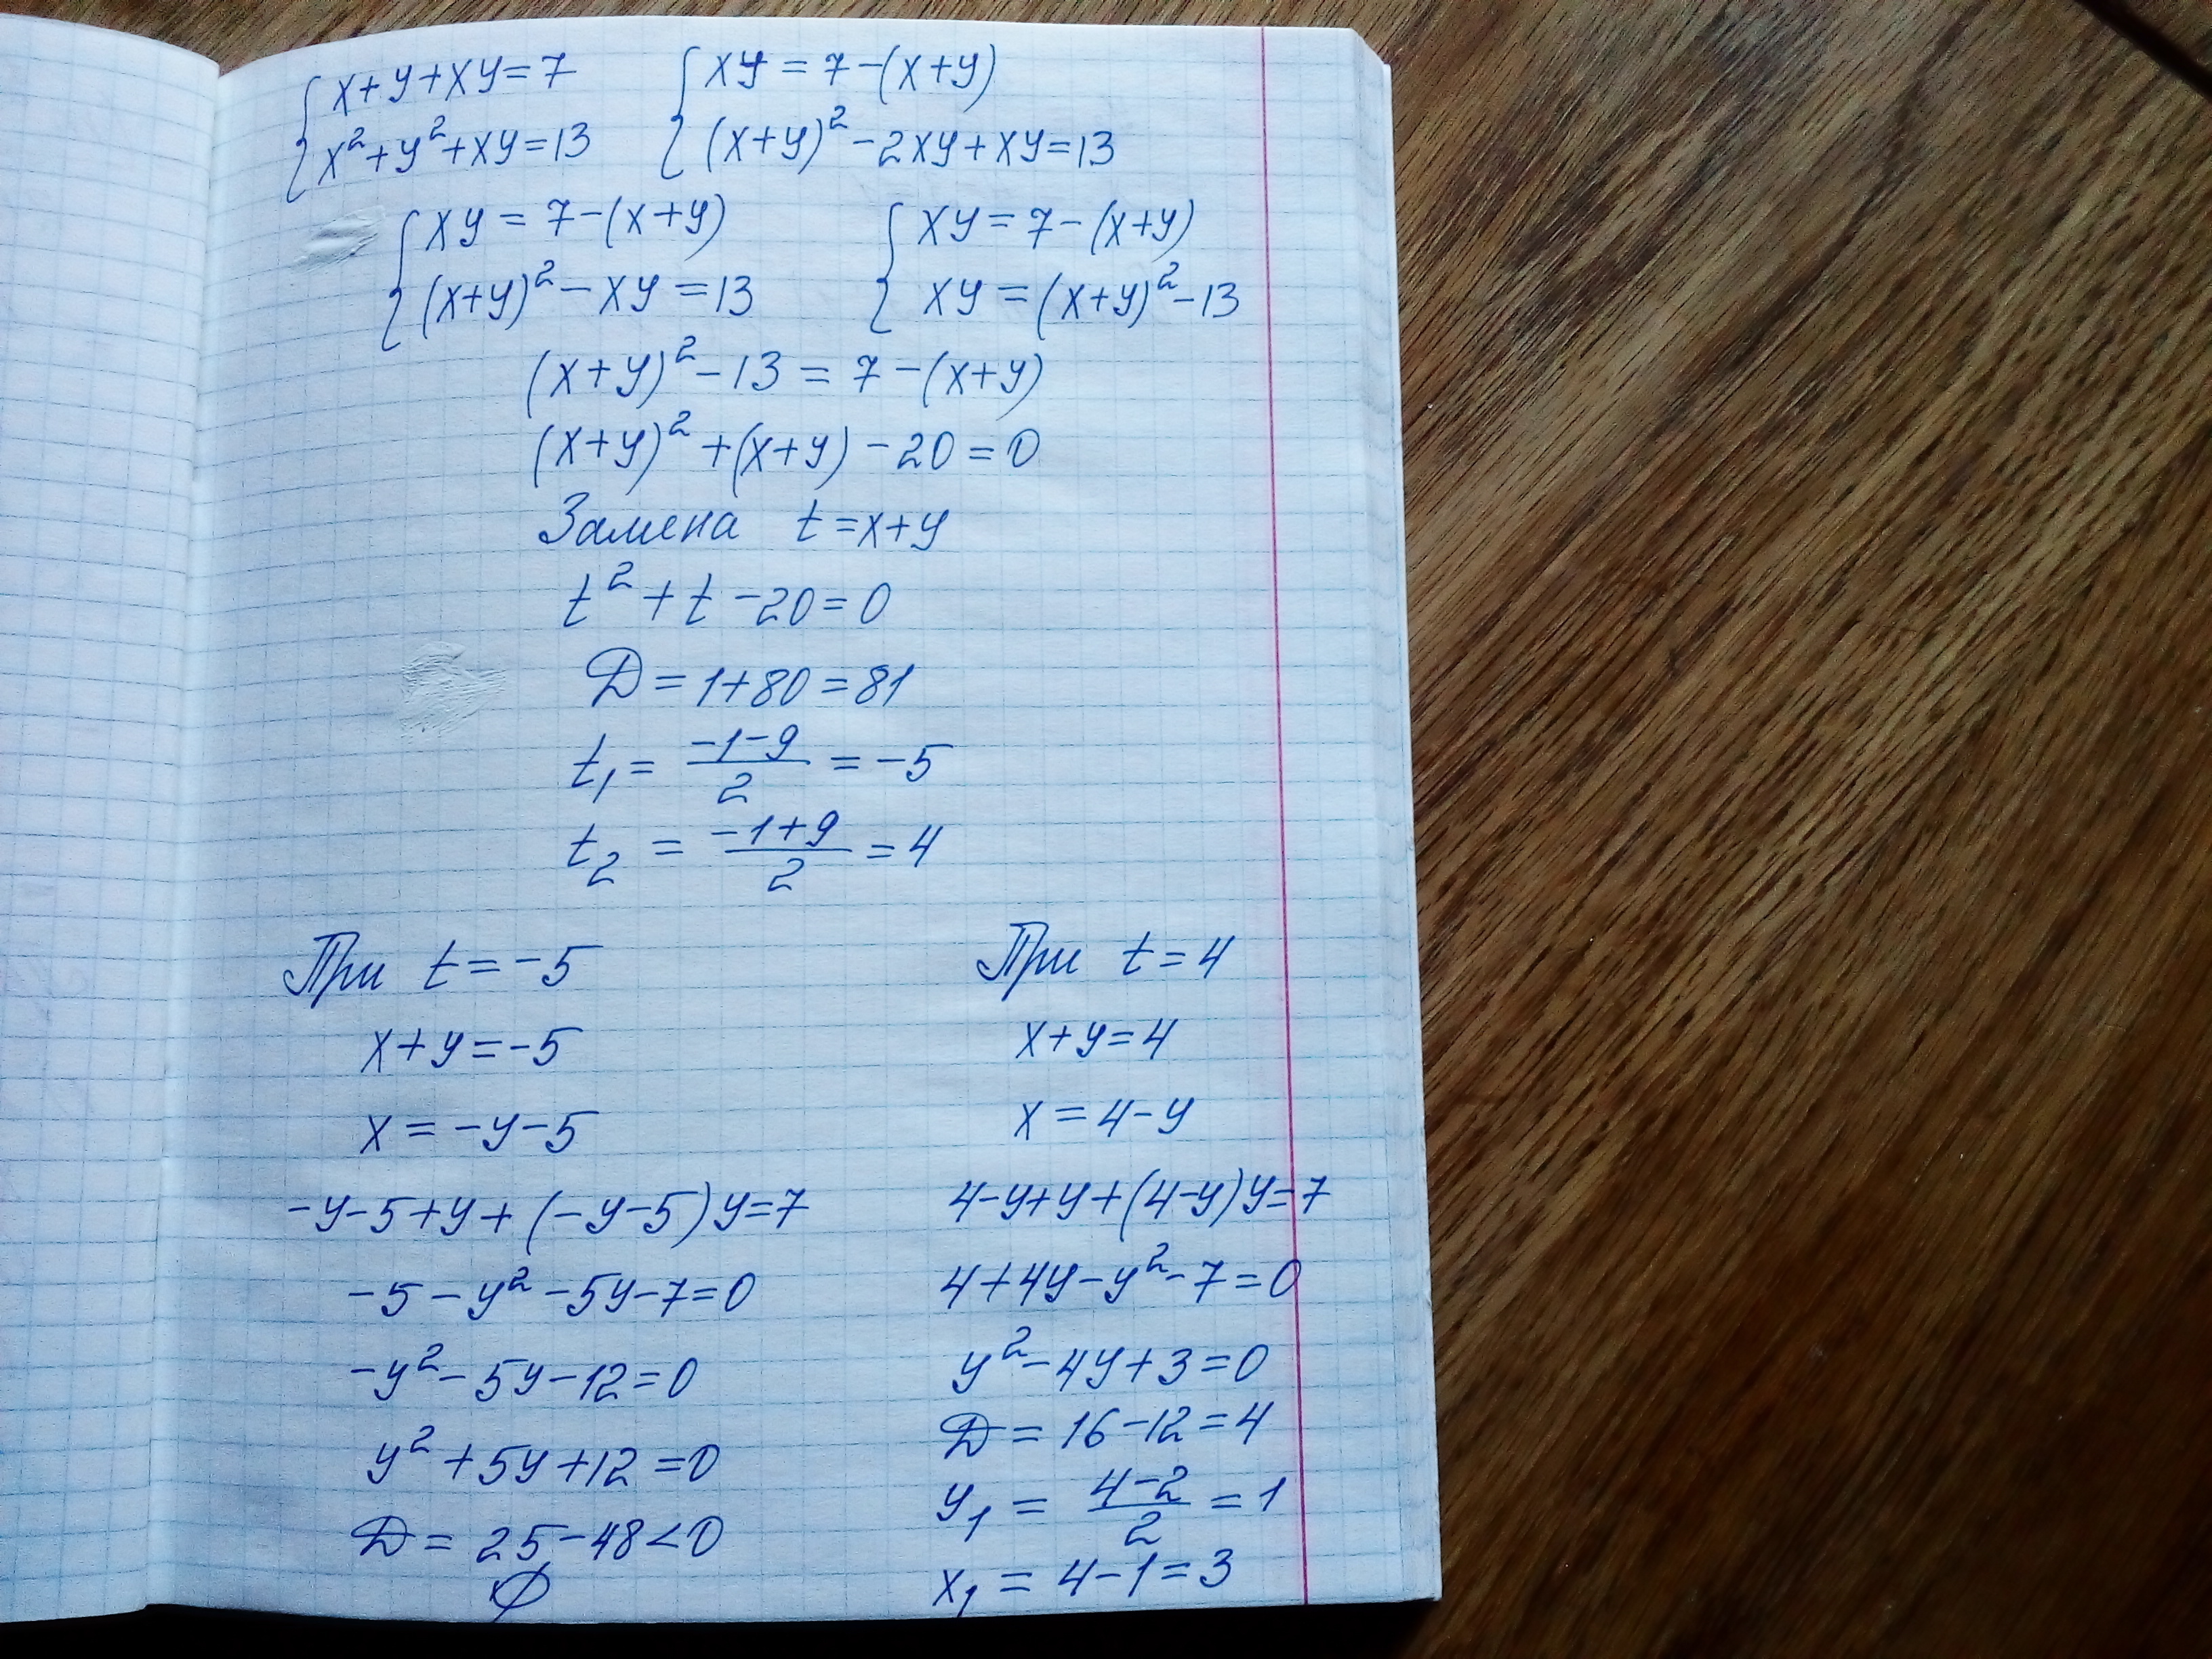 { x+y+xy=7
x²+y²+xy=13
{ xy = 7-(x+y)
(x+y)²-2xy+xy=13
{ xy = 7-(x+y)
(x+y)²-xy=13
{ xy = 7-(x+y)
xy = (x+y)²-13
(x+y)²-13 = 7-(x+y)
(x+y)²+(x+y)-20=0
Замена t=x+y
t²+t-20=0
Д=1+80=81
t₁ = (-1-9)/2 = -5
t₂ = (-1+9)/2 = 4
При t=-5
x+y=-5
x=-y-5
-y-5+y+(-y-5)y=7
-5-y²-5y-7=0
-y²-5y-12=0
y²+5y+12=0
Д=25-48<0
∅
При t=4
x+y=4
x=4-y
4-y+y+(4-y)y=7
4+4y-y²-7=0
y²-4y+3=0
Д=16-12=4
y₁ = (4-2)/2 = 1
x₁ = 4-1=3